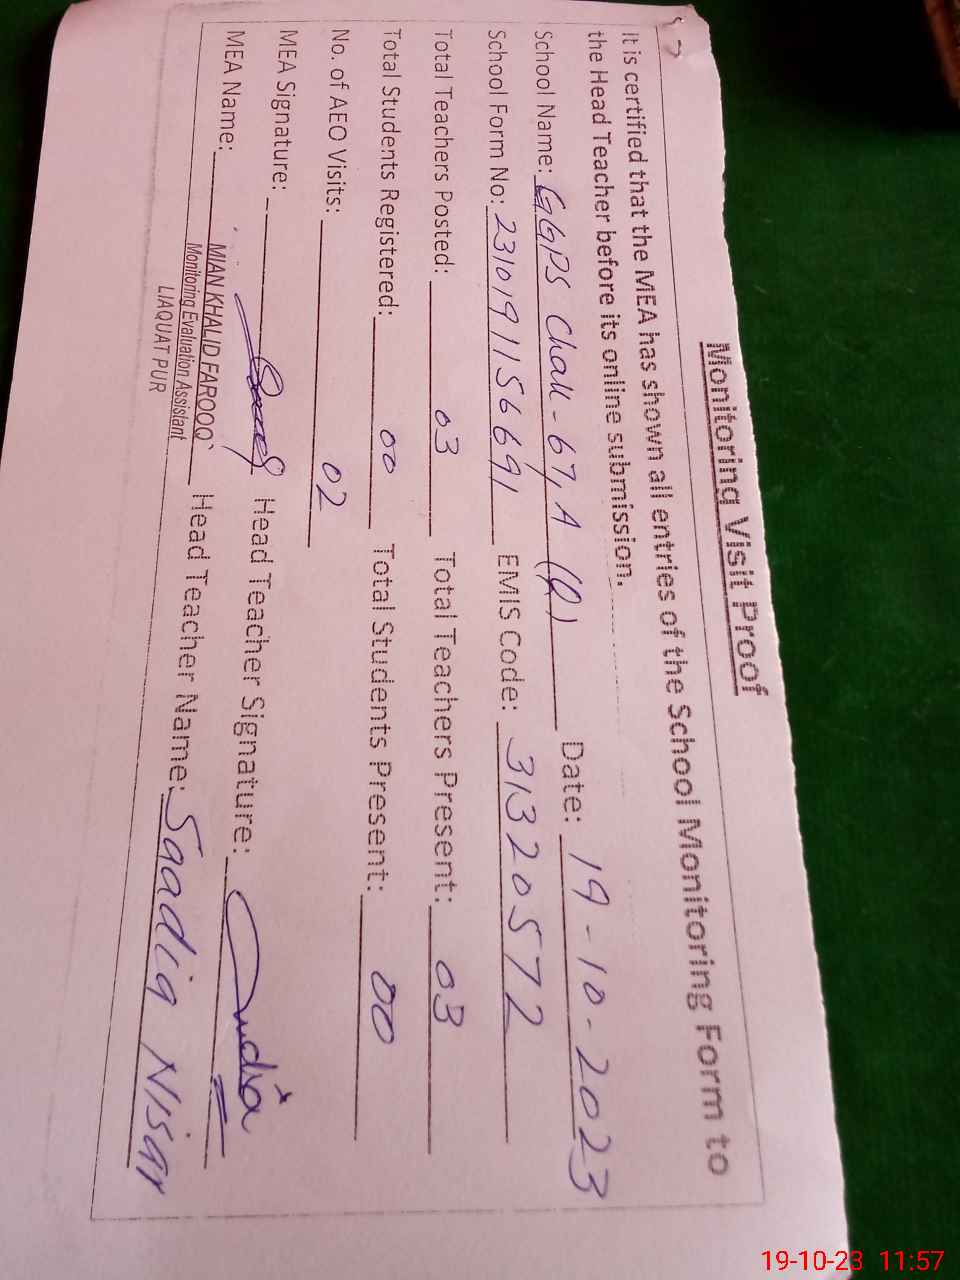 Monitoring Visit Proof
It is certified that the MEA has shown all entries of the School Monitoring Form to
the Head Teacher before its online submission.
School Name: GGPS Chak-67,A (Q) Date: 19-10-2023
School Form No: 2310191156691 EMIS Code: 31320572
Total Teachers Posted: 03 Total Teachers Present: 03
Total Students Registered: 00 Total Students Present: 00
No. of AEO Visits: 02
MEA Signature: Head Teacher Signature:
MEA Name: MIAN KHALID FAROOQ Head Teacher Name: Saadia Nisar
Monitoring Evaluation Assistant
LIAQUAT PUR
19-10-23 11:57